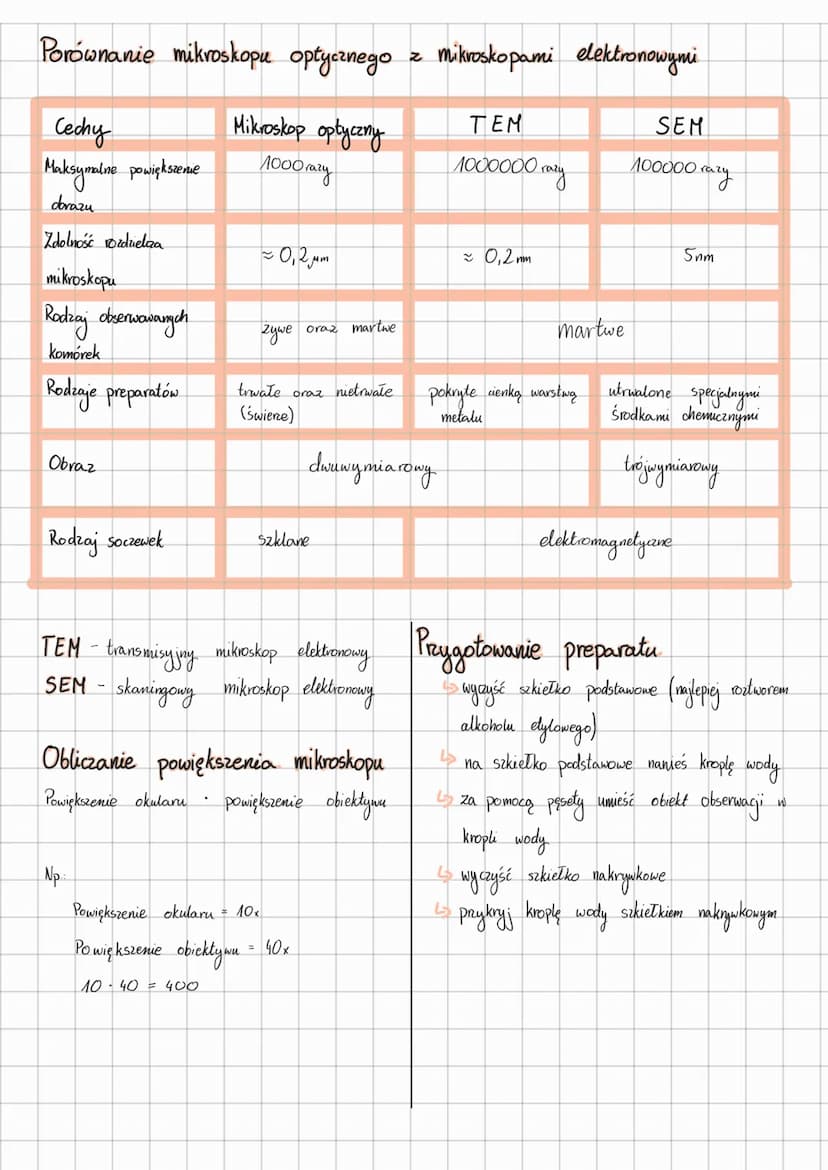 Porównanie mikroskopu optycznego z mikroskopami elektronowymi
Cechy Mikroskop optyczny TEM SEM
Maksymalne powiększenie
obrazu
1000 razy 1000000 razy 100000 razy
Zdolność rozdzielcza
mikroskopu
≈ 0,2 μm ≈ 0,2 nm 5nm
Rodzaj obserwowanych
komórek
żywe oraz martwe martwe
Rodzaje preparatów
trwałe oraz nietrwałe
(świeże)
pokryte cienką warstwą
metalu
utrwalone specjalnymi
środkami chemicznymi
Obraz dwuwymiarowy trójwymiarowy
Rodzaj soczewek szklane elektromagnetyczne
TEM - transmisyjny mikroskop elektronowy
SEM - skaningowy mikroskop elektronowy
Obliczanie powiększenia mikroskopu
Powiększenie okularu · powiększenie obiektywu
Np:
Powiększenie okularu = 10x
Powiększenie obiektywu = 40x
10 · 40 = 400
Przygotowanie preparatu
↳ wyczyść szkiełko podstawowe (najlepiej roztworem
alkoholu etylowego)
↳ na szkiełko podstawowe nanieś kroplę wody
↳ za pomocą pęsety umieść obiekt obserwacji w
kropli wody
↳ wyczyść szkiełko nakrywkowe
↳ przykryj kroplę wody szkiełkiem nakrywkowym